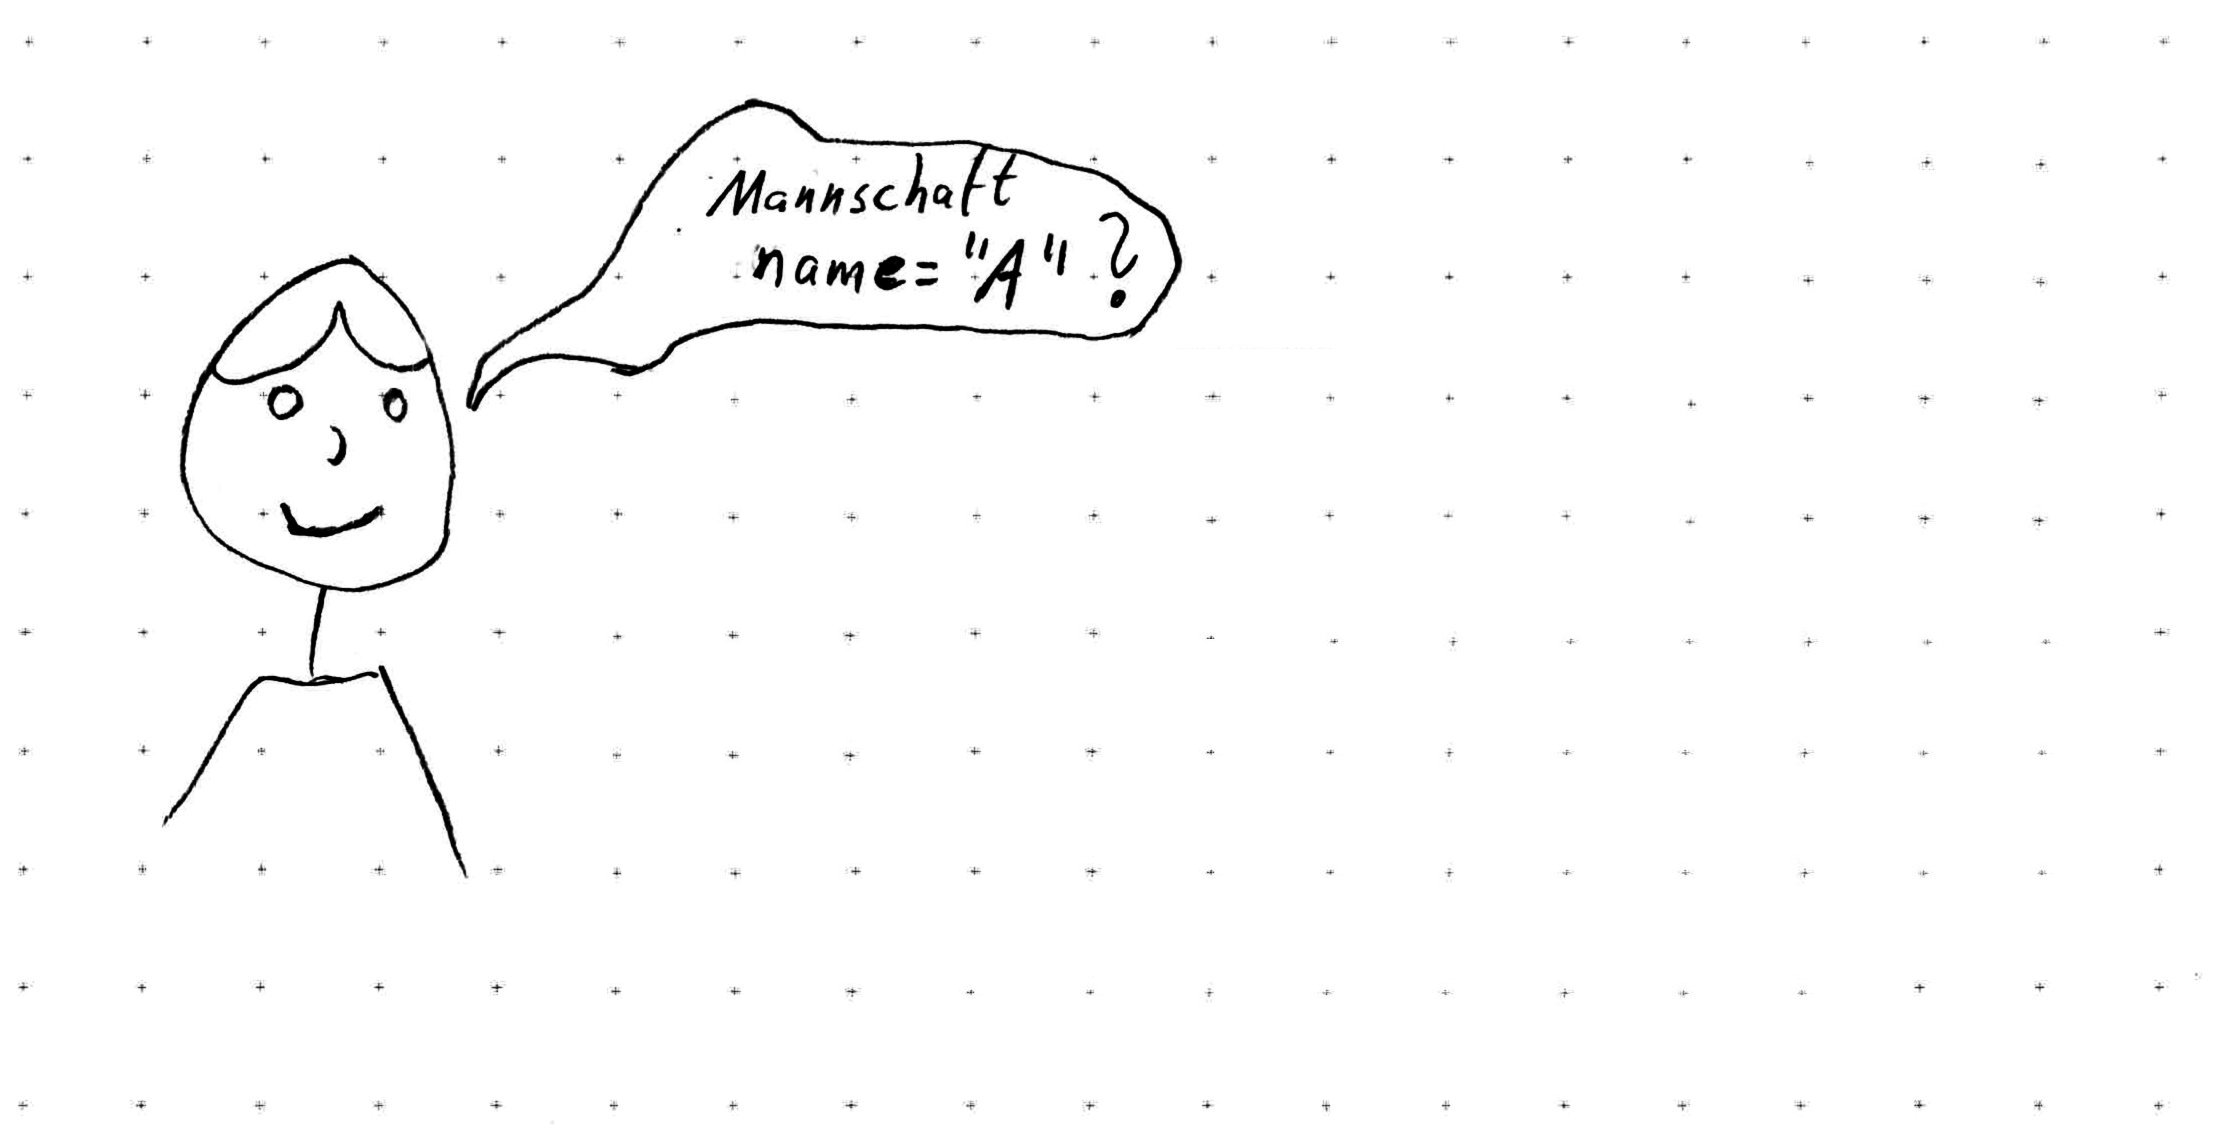 Mannschaft
name="A"?